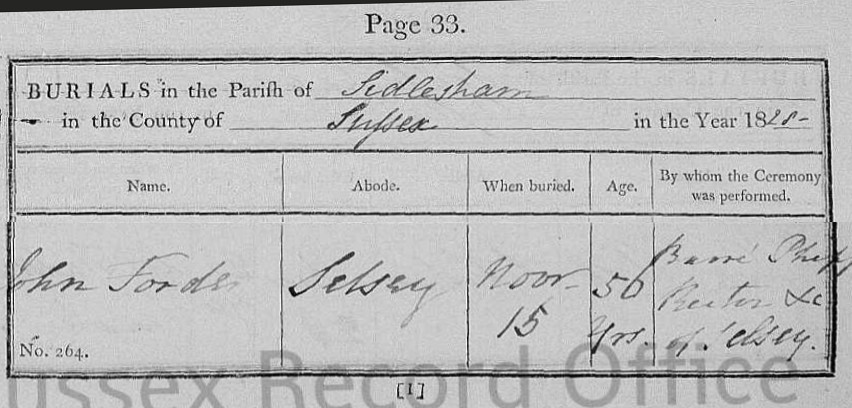 Page 33.
BURIALS in the Parish of Sidlesham
in the County of Sussex in the Year 1828-
Name. Abode. When buried. Age. By whom the Ceremony was performed.
John Forder Selsey Novr 15 50 Yrs. Barré Phipps Rector &c of Selsey.
No. 264.
[1]
ussex Record Office